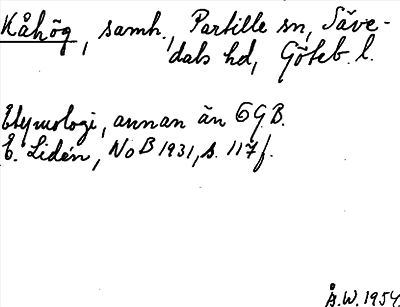 Kåhög, samh., Partille sn, Säve-
dals hd, Göteb. l.
Etymologi, annan än OGB.
E. Lidén, NoB 1931, s. 117 f.
Å.W. 1954.